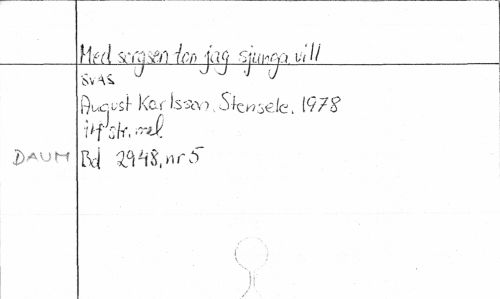 Med sorgsen ton jag sjunga vill
SVAS
August Karlsson, Stensele, 1978
1 tf str, mel.
DAUM Bd 2948, nr 5